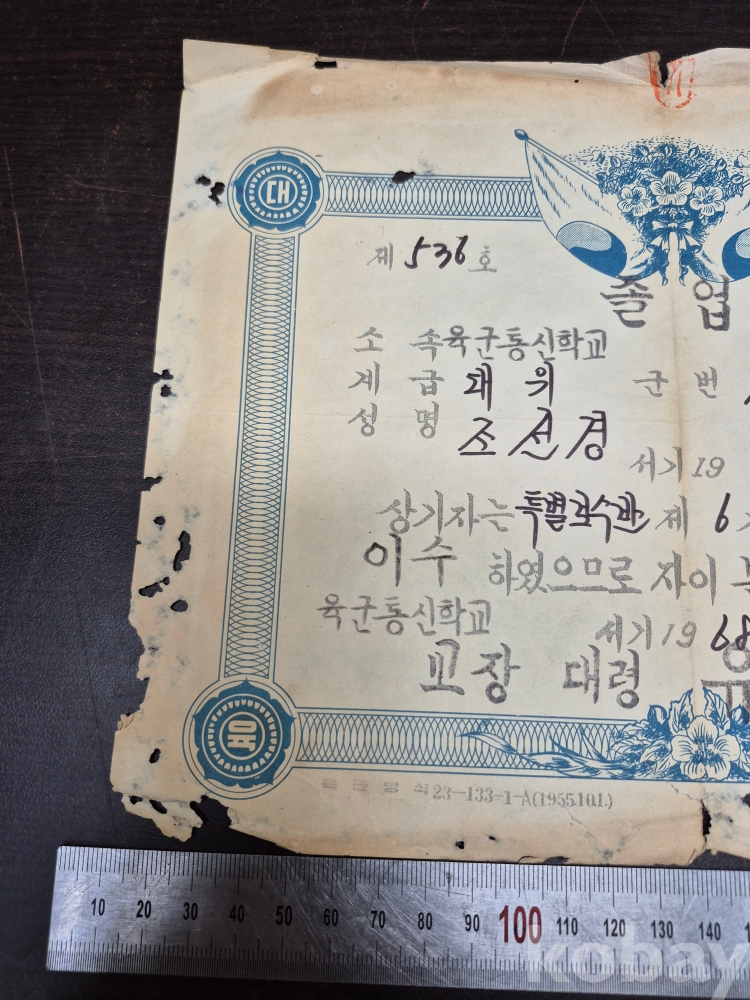 대
제 536 호
졸 업
소 속 육군통신학교
계 급 대 위 군 번
성 명 조선경
서기 19
상기자는 특별 제 6
이수 하였으므로 자이
육군통신학교 서기 19 68
교장 대령
육
육 군 양 식 23-133-1-A(1955.10.1.)
10 20 30 40 50 60 70 80 90 100 110 120 130 140
kobay